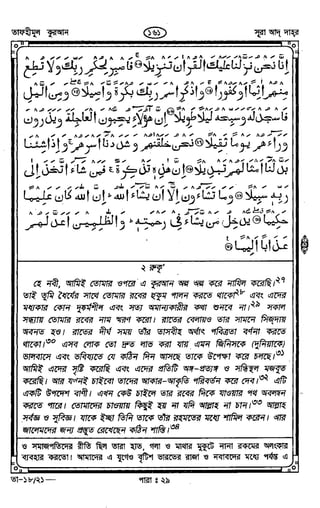 তাফহীমুল কুরআন
১৬১
সূরা আদ্ দাহর
إِنَّا نَحْنُ نَزَّلْنَا عَلَيْكَ الْقُرْآنَ تَنْزِيلًا ﴿٢٣﴾ فَاصْبِرْ لِحُكْمِ رَبِّكَ وَلَا تُطِعْ
مِنْهُمْ آثِمًا أَوْ كَفُورًا ﴿٢٤﴾ وَاذْكُرِ اسْمَ رَبِّكَ بُكْرَةً وَّأَصِيلًا ﴿٢٥﴾ وَمِنَ اللَّيْلِ
فَاسْجُدْ لَهُ وَسَبِّحْهُ لَيْلًا طَوِيلًا ﴿٢٦﴾ إِنَّ هَٰؤُلَاءِ يُحِبُّونَ الْعَاجِلَةَ وَيَذَرُونَ
وَرَاءَهُمْ يَوْمًا ثَقِيلًا ﴿٢٧﴾ نَحْنُ خَلَقْنَاهُمْ وَشَدَدْنَا أَسْرَهُمْ ۚ وَإِذَا شِئْنَا
بَدَّلْنَا أَمْثَالَهُمْ تَبْدِيلًا ﴿٢٨﴾ إِنَّ هَٰذِهِ تَذْكِرَةٌ ۚ فَمَنْ شَاءَ اتَّخَذَ إِلَىٰ
رَبِّهِ سَبِيلًا ﴿٢٩﴾ وَمَا تَشَاءُونَ إِلَّا أَنْ يَشَاءَ اللَّهُ ۚ إِنَّ اللَّهَ كَانَ عَلِيمًا
حَكِيمًا ﴿٣٠﴾ يُدْخِلُ مَنْ يَشَاءُ فِي رَحْمَتِهِ ۚ وَالظَّالِمِينَ أَعَدَّ لَهُمْ
عَذَابًا أَلِيمًا ﴿٣١﴾
২ রুকূ’
হে নবী, আমিই তোমার ওপরে এ কুরআন অল্প অল্প করে নাযিল করেছি।২৭
তাই তুমি ধৈর্যের সাথে তোমার রবের হুকুম পালন করতে থাকো২৮ এবং এদের
মধ্যকার কোন দুষ্কর্মশীল এবং সত্য অমান্যকারীর কথা শুনবে না।২৯ সকাল
সন্ধ্যায় তোমার রবের নাম স্মরণ করো। রাতের বেলায়ও তার সামনে সিজদায়
অবনত হও। রাতের দীর্ঘ সময় তাঁর তাসবীহ অর্থাৎ পবিত্রতা বর্ণনা করতে
থাকো।৩০ এসব লোক তো দ্রুত লাভ করা যায় এমন জিনিসকে (দুনিয়াকে)
ভালবাসে এবং ভবিষ্যতে যে কঠিন দিন আসছে তাকে উপেক্ষা করে চলছে।৩১
আমিই এদের সৃষ্টি করেছি এবং এদের প্রতিটি অঙ্গ-প্রত্যঙ্গ ও সন্ধিস্থল মজবুত
করেছি। আর যখনই চাইবো তাদের আকার-আকৃতি পরিবর্তন করে দেব।৩২ এটি
একটি উপদেশ বাণী। এখন কেউ চাইলে তার রবের দিকে যাওয়ার পথ অবলম্বন
করতে পারে। তোমাদের চাওয়ায় কিছুই হয় না যদি আল্লাহ না চান।৩৩ আল্লাহ
সর্বজ্ঞ ও সুবিজ্ঞ। যাকে ইচ্ছা তিনি তাকে তাঁর রহমতের মধ্যে শামিল করেন। আর
জালেমদের জন্য প্রস্তুত রেখেছেন কঠিন শাস্তি।৩৪
ও সমাজপতিদের রীতি ছিল তারা হাত, গলা ও মাথার মুকুটে নানা রকমের অলংকার
ব্যবহার করতো। আমাদের এ যুগেও বৃটিশ ভারতের রাজা ও নবাবদের মধ্যে পর্যন্ত এ
তা-১৮/২১—
পারা : ২৯